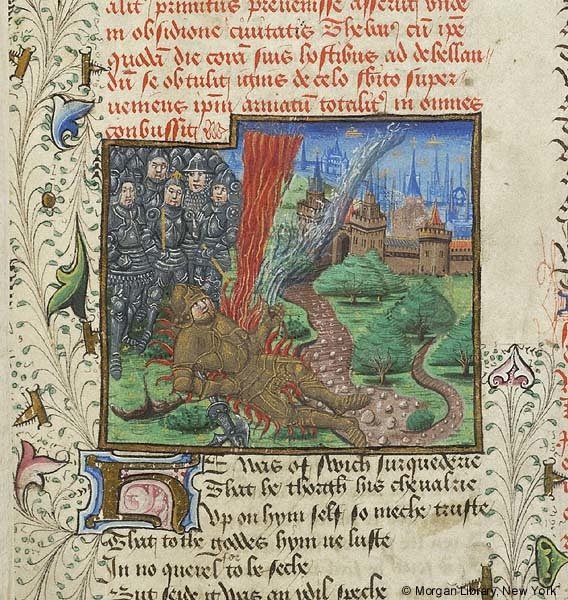 alit primitus prevenisse asserit unde
in obsidione civitatis Thebar cu ipe
quodā die corā suis hostibus ad debellan
dū se obtulit ignis de celo sbito super
vemens ipm armatū totalit in omnes
conbussit
He was of swich surquederie
That he thorgh his chevalrie
Vp on hym self so meche truste
That to the goddes hym ne luste
In no querel to be seche
But seide it was an ydil speche
© Morgan Library, New York